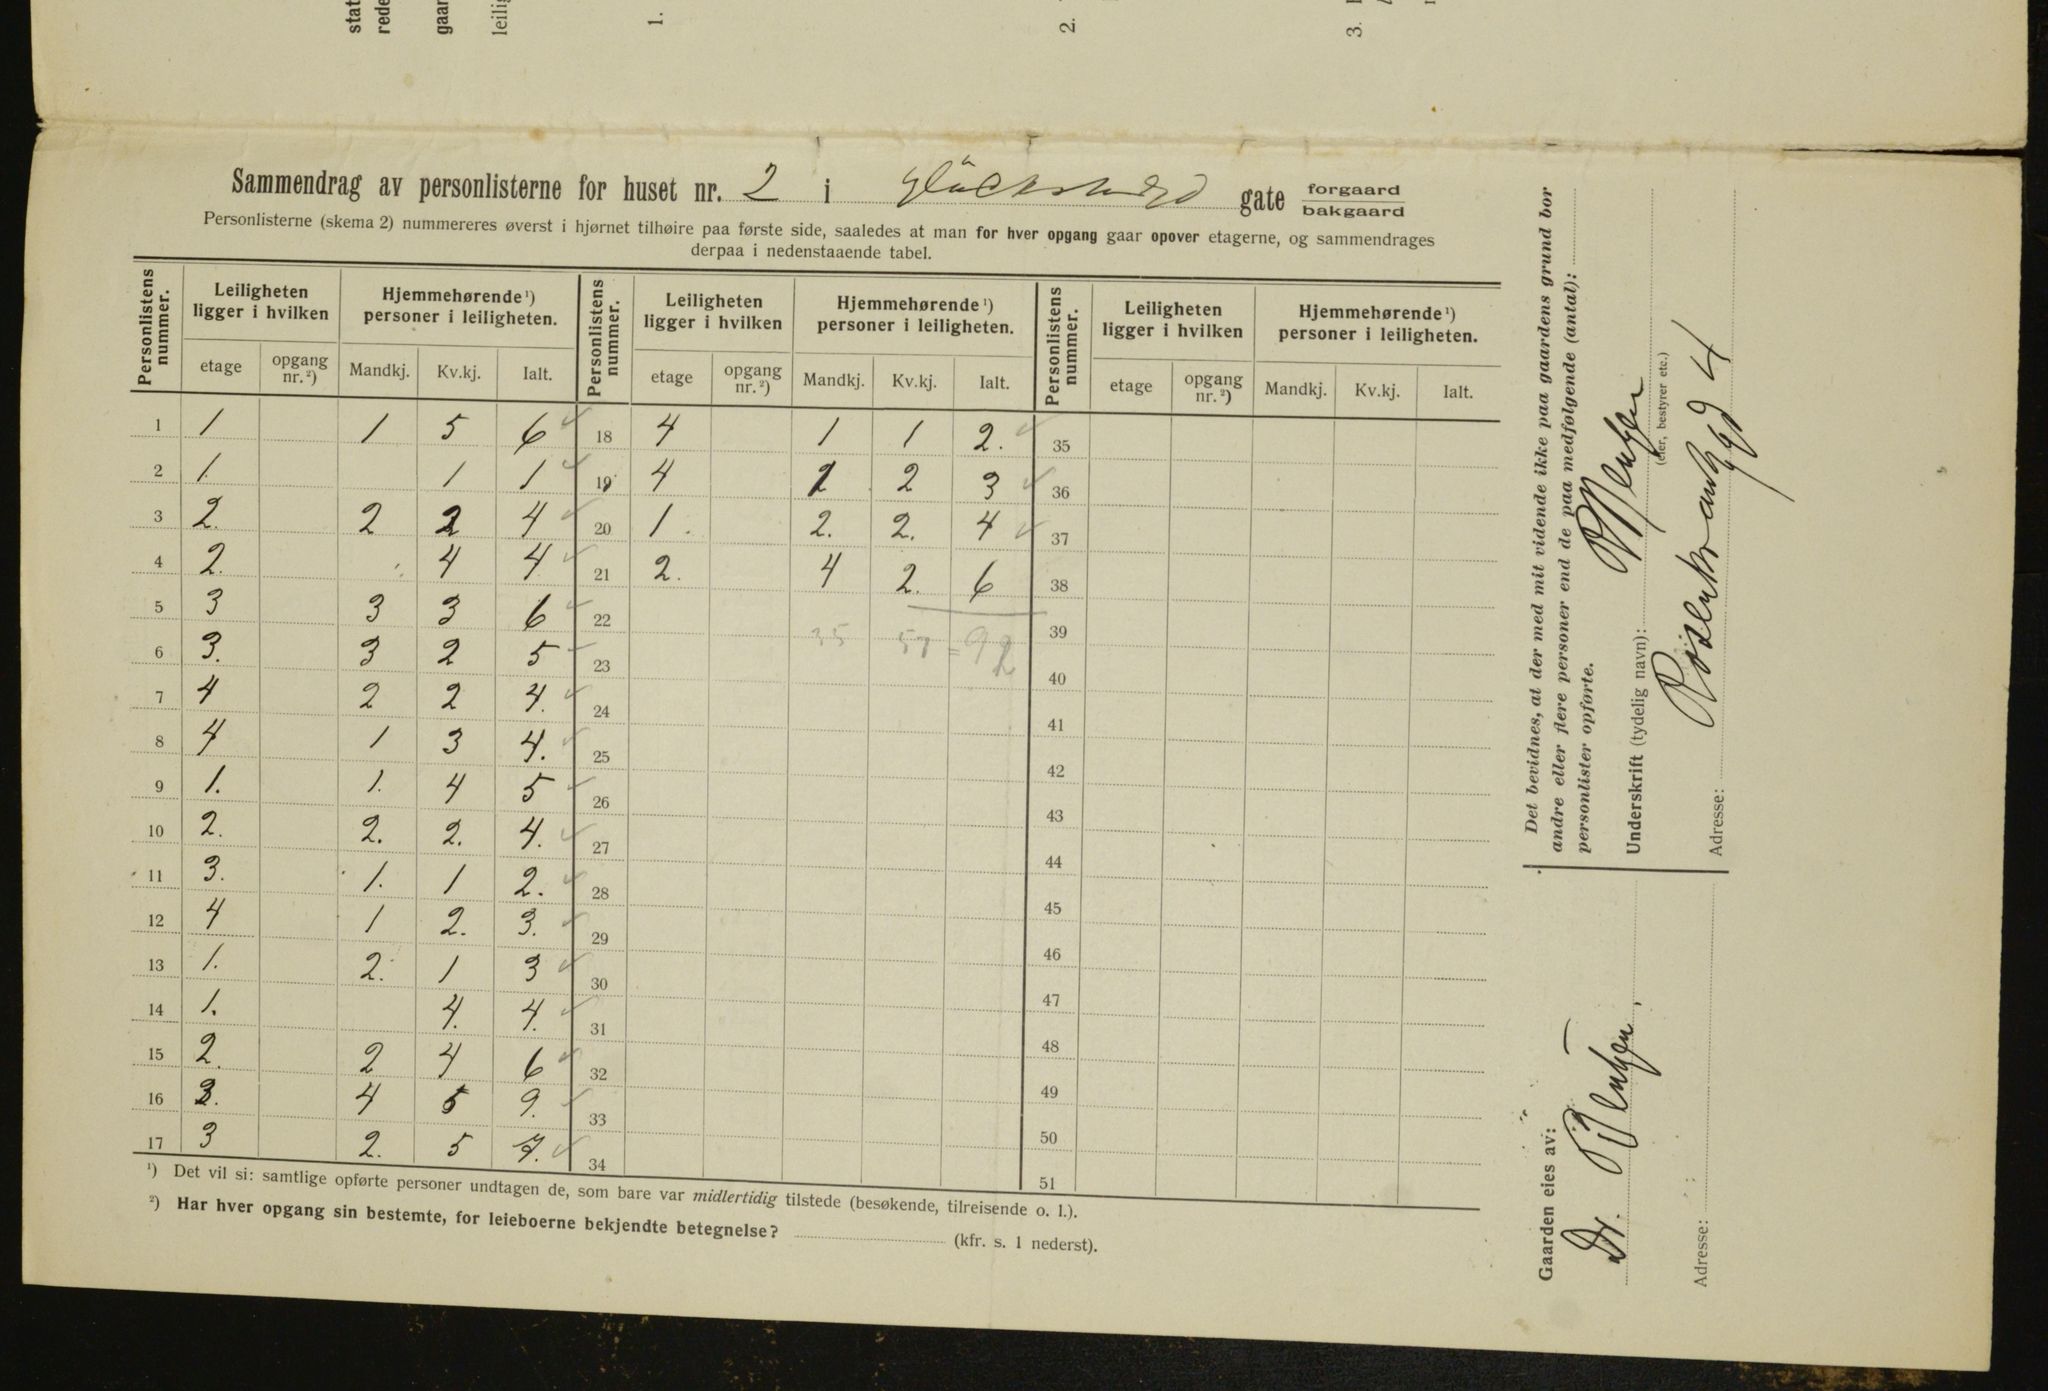 stat
rede
gaar
leilig
1.
2.
3.
Sammendrag av personlisterne for huset nr. 2 i gate forgaard
bakgaard
Personlisterne (skema 2) nummereres øverst i hjørnet tilhøire paa første side, saaledes at man for hver opgang gaar opover etagerne, og sammendrages
derpaa i nedenstaaende tabel.
Personlistens nummer. Leiligheten ligger i hvilken Hjemmehørende ¹) personer i leiligheten. Personlistens nummer. Leiligheten ligger i hvilken Hjemmehørende ¹) personer i leiligheten. Personlistens nummer. Leiligheten ligger i hvilken Hjemmehørende ¹) personer i leiligheten.
etage opgang nr. ²) Mandkj. Kv.kj. Ialt. etage opgang nr. ²) Mandkj. Kv.kj. Ialt. etage opgang nr. ²) Mandkj. Kv.kj. Ialt.
1 1 1 5 6 18 4 1 1 2. 35
2 1. 1 1 19 4 1 2 3 36
3 2. 2 2 4 20 1. 2. 2. 4 37
4 2. 4 4 21 2. 4 2. 6 38
5 3 3 3 6 22 35 57 = 92 39
6 3. 3 2 5 23 40
7 4 2 2 4. 24 41
8 4 1 3 4. 25 42
9 1. 1. 4 5 26 43
10 2. 2. 2. 4. 27 44
11 3. 1. 1 2. 28 45
12 4 1 2. 3. 29 46
13 1. 2. 1 3 30 47
14 1. 4. 4. 31 48
15 2. 2 4 6 32 49
16 3. 4 5 9. 33 50
17 3 2. 5 7. 34 51
¹) Det vil si: samtlige opførte personer undtagen de, som bare var midlertidig tilstede (besøkende, tilreisende o. l.).
²) Har hver opgang sin bestemte, for leieboerne bekjendte betegnelse? (kfr. s. 1 nederst).
Det bevidnes, at der med mit vidende ikke paa gaardens grund bor
andre eller flere personer end de paa medfølgende (antal):
personlister opførte.
Underskrift (tydelig navn):
(eier, bestyrer etc.)
Adresse: 4
Gaarden eies av:
Dr.
Adresse: